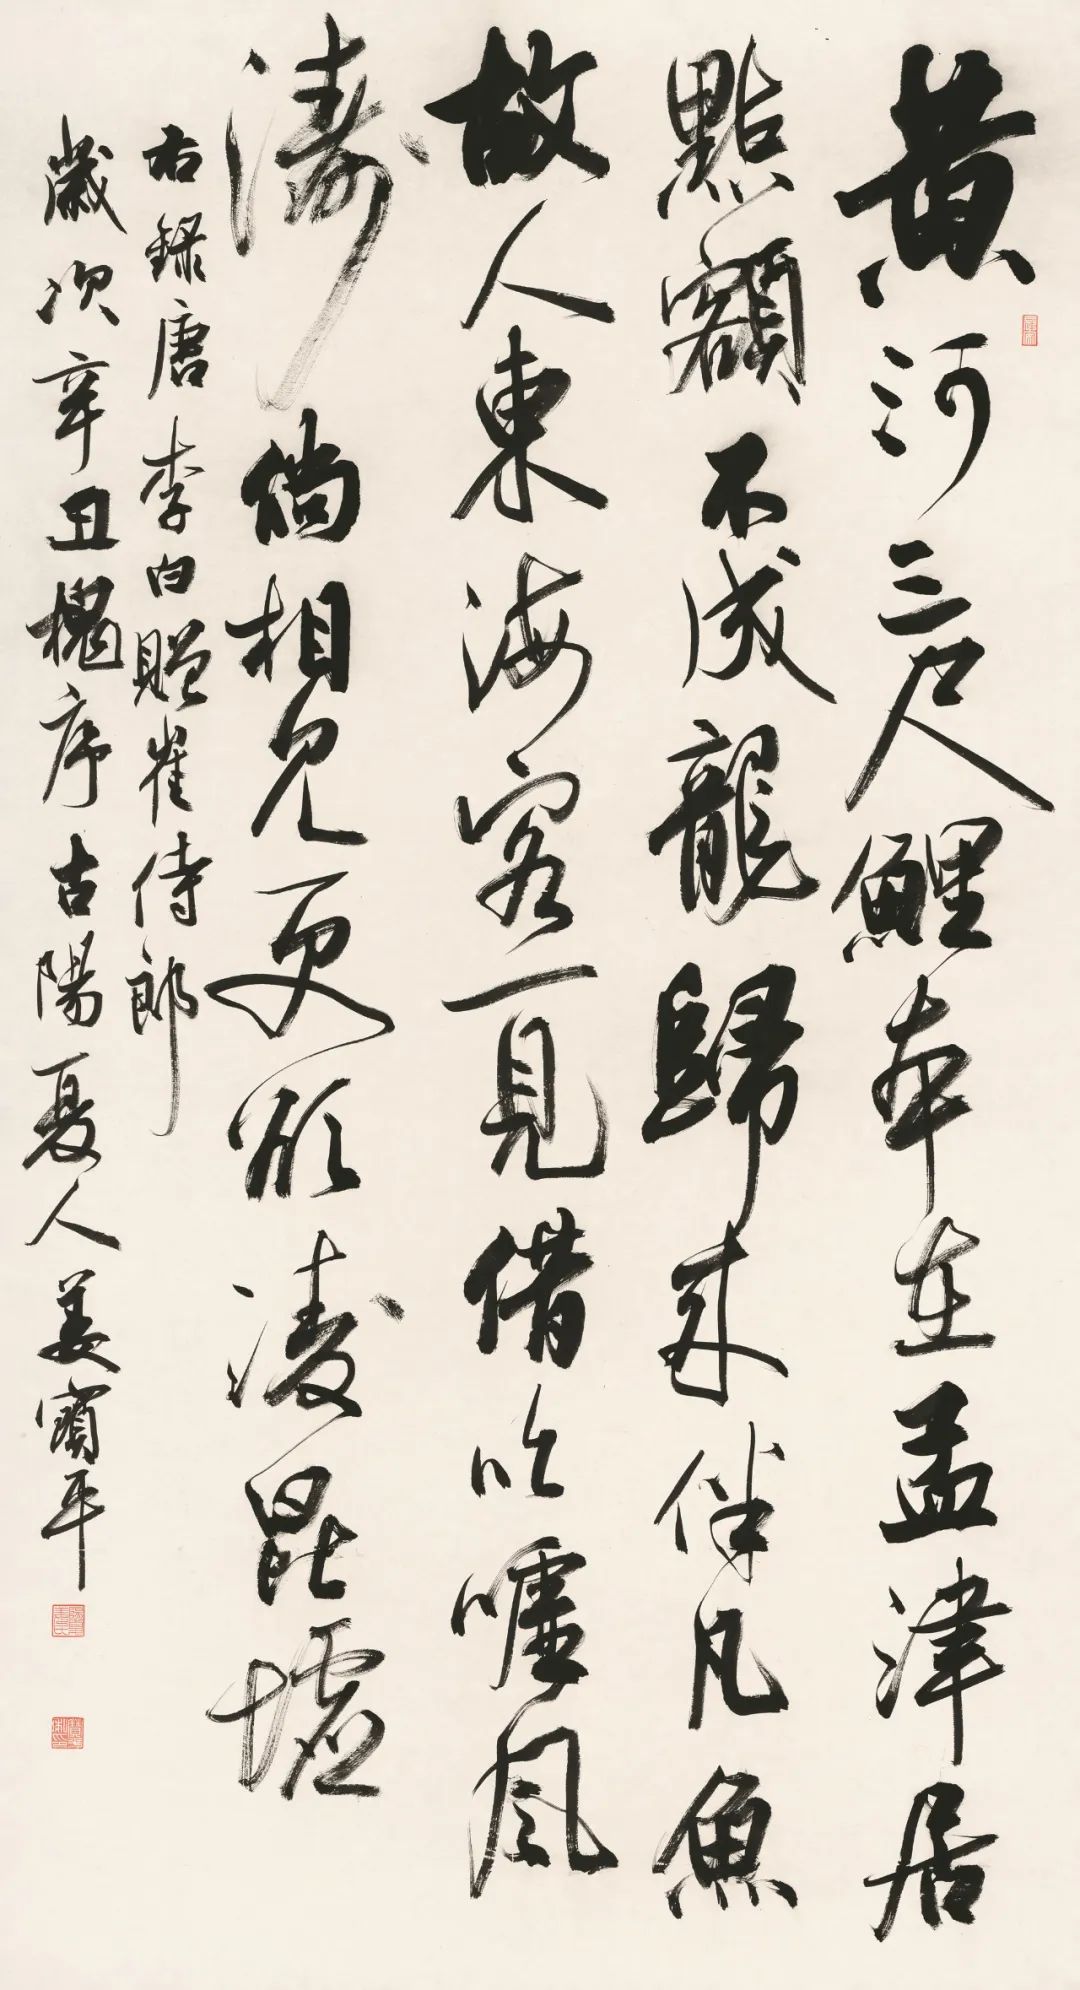 黄河三尺鯉本在孟津居
點額不成龍歸來伴凡魚
故人東海客一見借吹噓風
濤儻相見更欲凌昆墟
右録唐李白贈崔侍郎
歲次辛丑槐序古陽夏人姜寶平